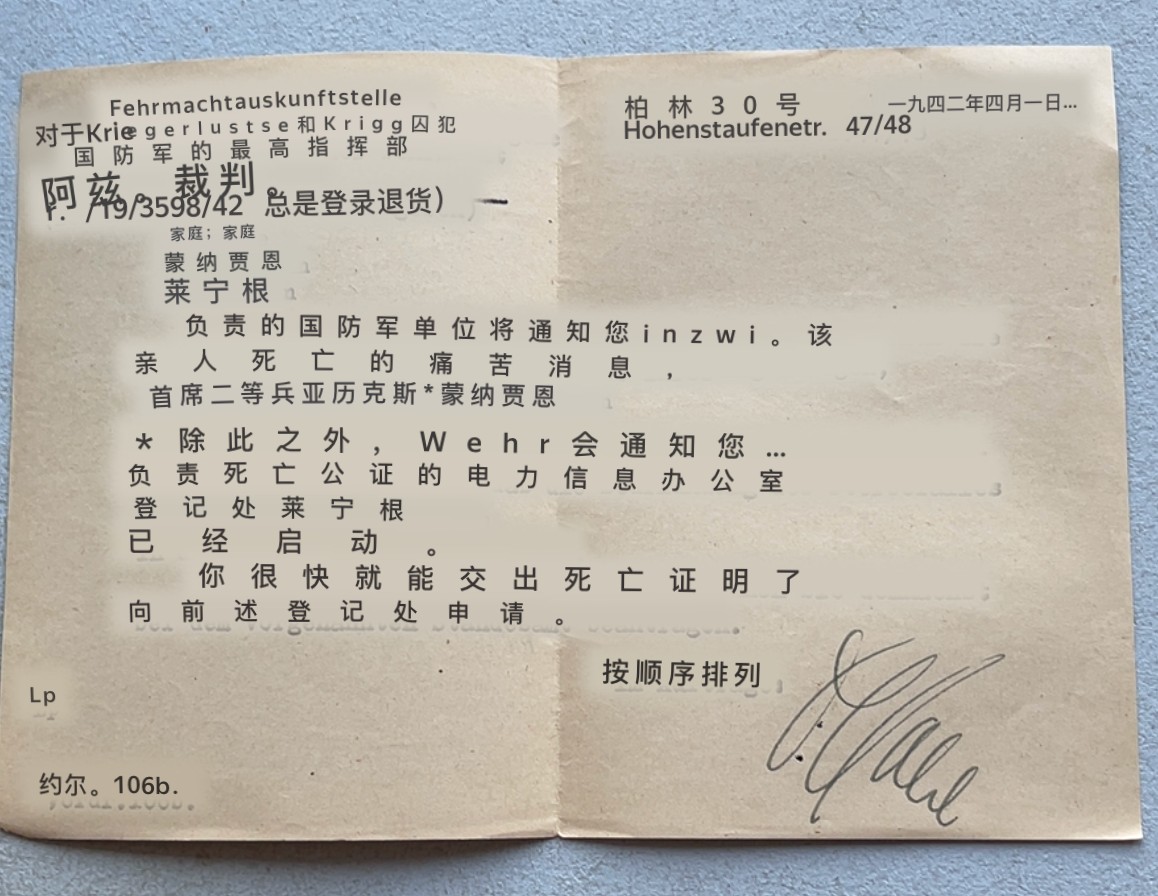 Fehrmachtauskunftstelle
对于Kriegerlustse和Krigg囚犯
国防军的最高指挥部
阿兹。裁判。
r. /19/3598/42 总是登录退货）
柏林30号 一九四二年四月一日...
Hohenstaufenetr. 47/48
家庭；家庭
蒙纳贾恩
莱宁根
负责的国防军单位将通知您inzwi。该
亲人死亡的痛苦消息，
首席二等兵亚历克斯*蒙纳贾恩
*除此之外，Wehr会通知您...
负责死亡公证的电力信息办公室
登记处莱宁根
已经启动。
你很快就能交出死亡证明了
向前述登记处申请。
按顺序排列
Lp
约尔。106b.